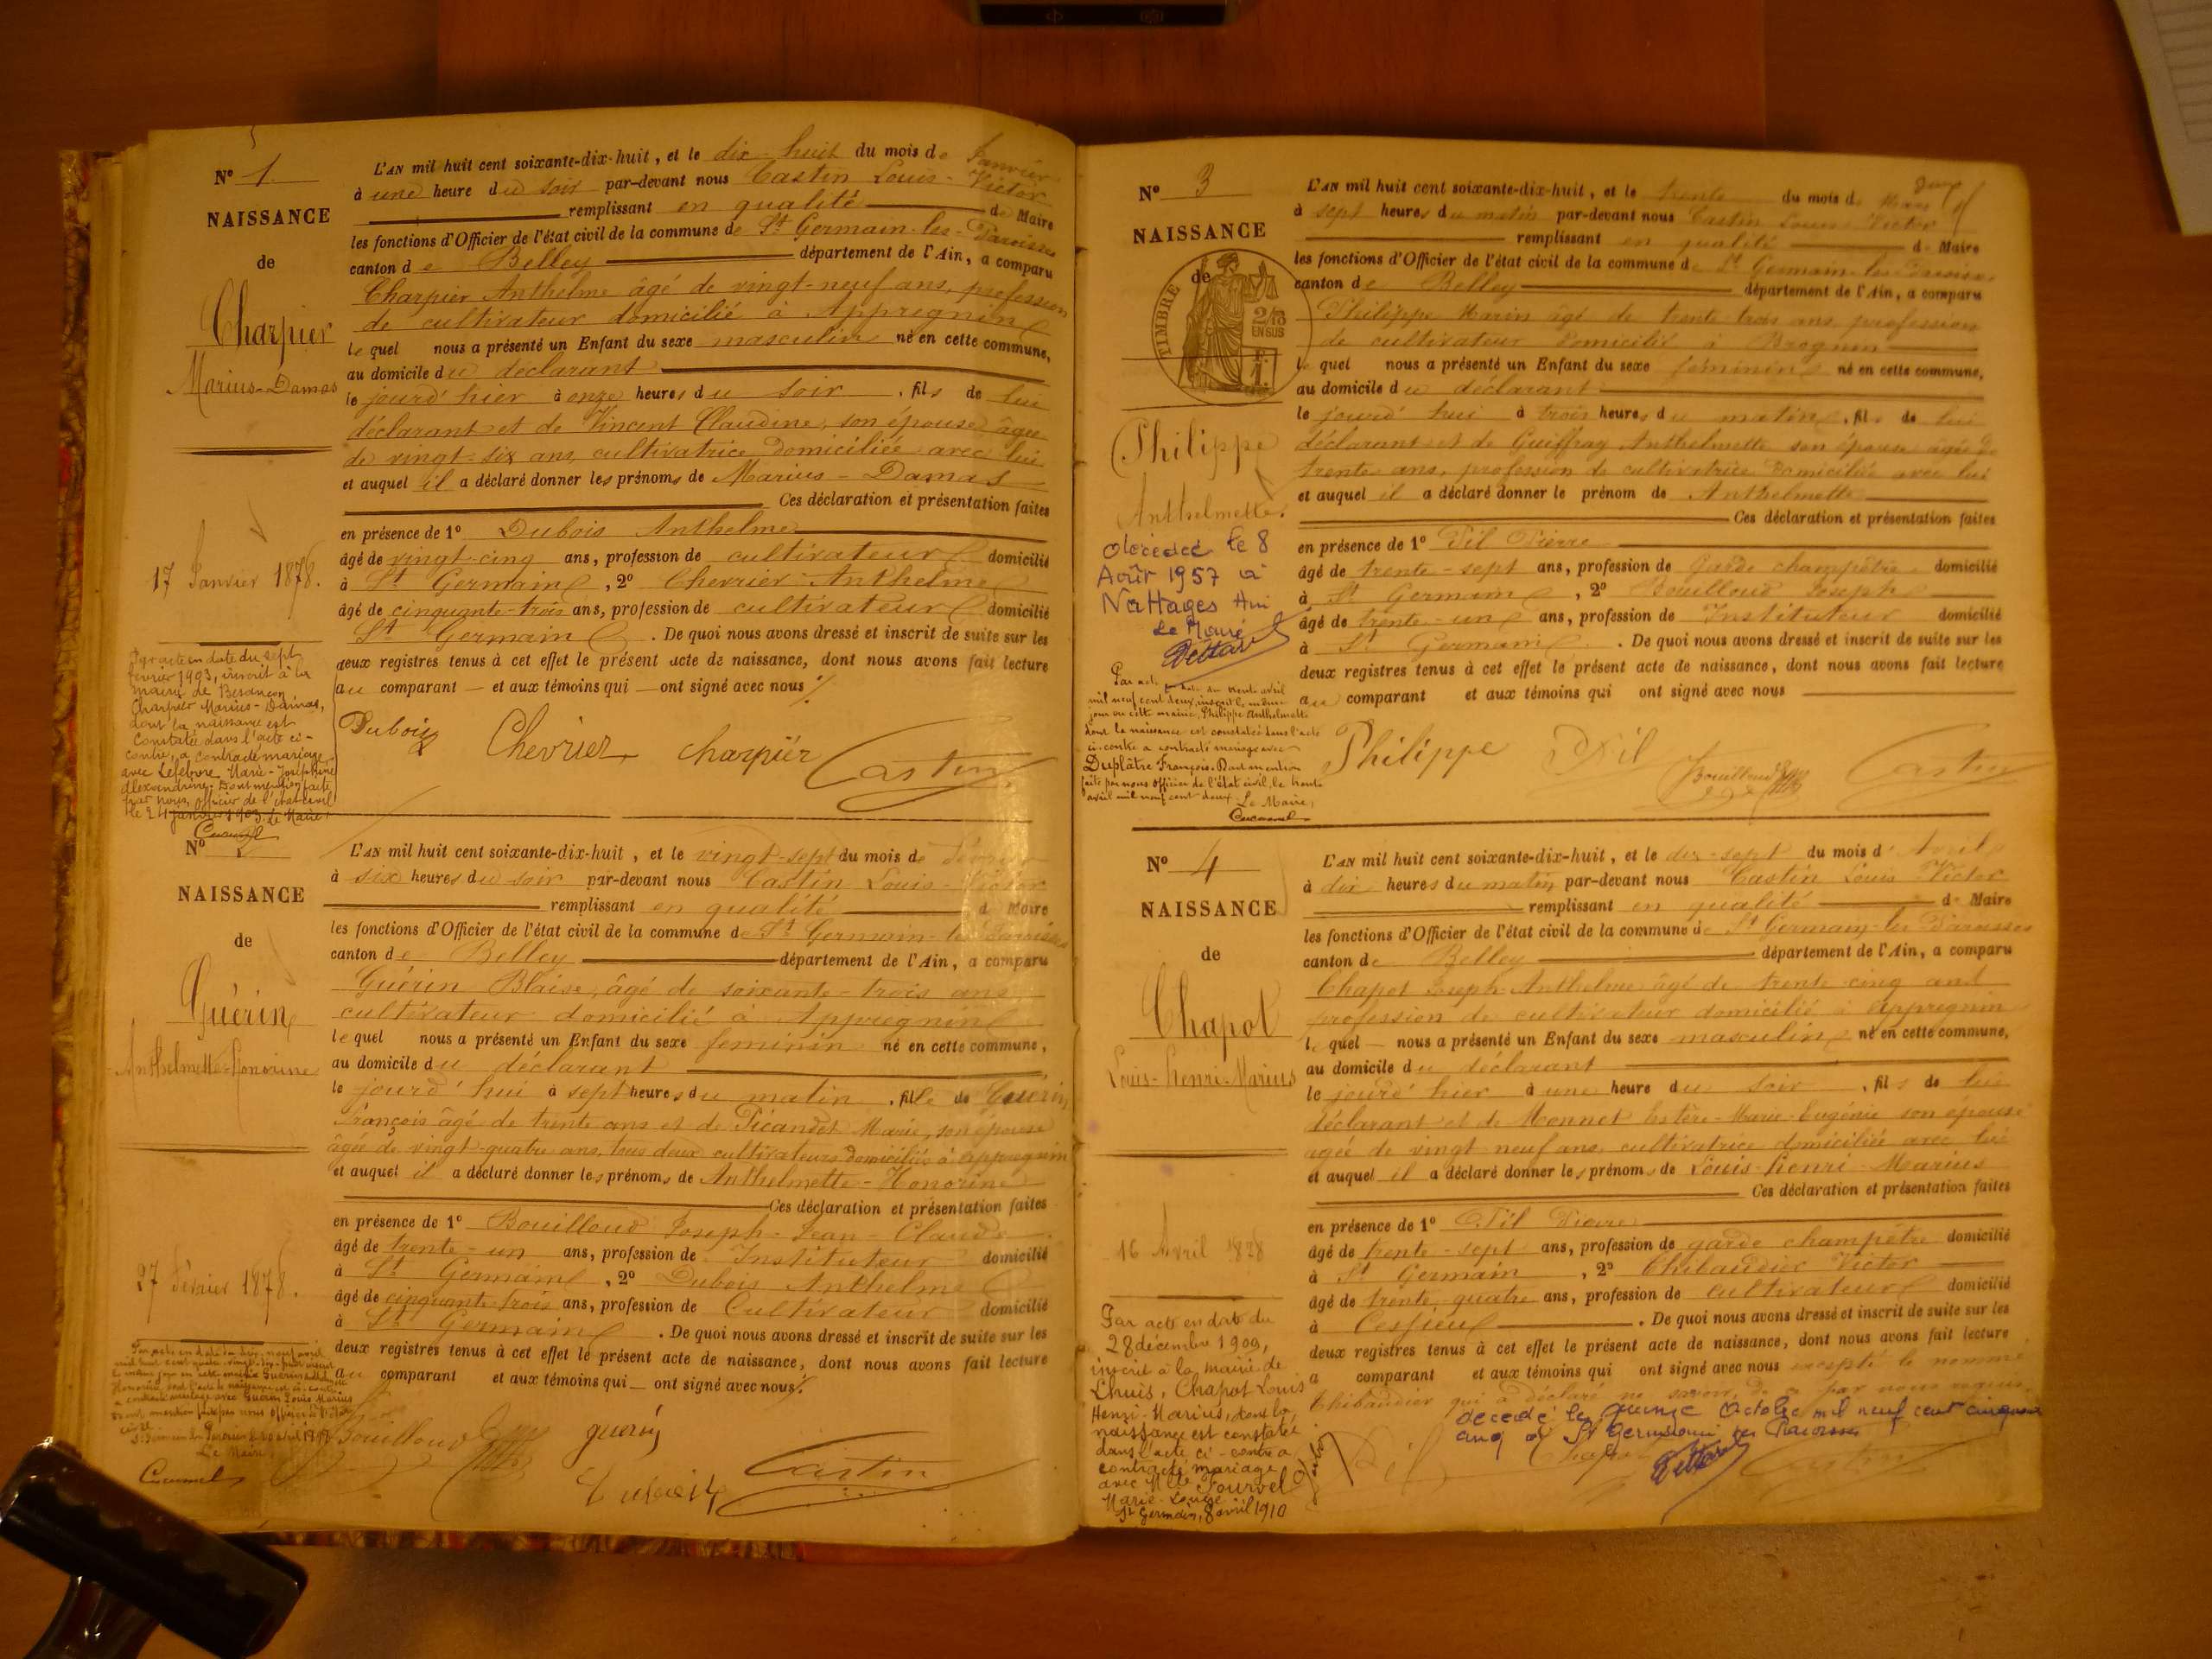 N° 1
NAISSANCE
de
Charpier
Marius-Damas
17 Janvier 1878.
Par acte en date du sept
février 1903, inscrit à la
mairie de Besançon,
Charpier Marius-Damas,
dont la naissance est
constatée dans l'acte ci-
contre, a contracté mariage
avec Lefebvre Marie-Joséphine
Alexandrine. Dont mention faite
par nous, officier de l'état civil
le 24 1903. Le Maire
L'AN mil huit cent soixante-dix-huit, et le dix-huit du mois de Janvier
à une heure du soir par-devant nous Castin Louis-Victor
remplissant en qualité de Maire
les fonctions d'Officier de l'état civil de la commune de St Germain-les-Paroisses
canton de Belley département de l'Ain, a comparu
Charpier Anthelme âgé de vingt-neuf ans, profession
de cultivateur domicilié à Appregnin
lequel nous a présenté un Enfant du sexe masculin né en cette commune,
au domicile du déclarant
le jourd'hier à onze heures du soir, fils de lui
déclarant et de Vincent Claudine, son épouse âgée
de vingt-six ans, cultivatrice, domiciliée avec lui
et auquel il a déclaré donner les prénoms de Marius-Damas
Ces déclaration et présentation faites
en présence de 1° Dubois Anthelme
âgé de vingt-cinq ans, profession de cultivateur domicilié
à St Germain, 2° Chevrier Anthelme
âgé de cinquante-trois ans, profession de cultivateur domicilié
St Germain. De quoi nous avons dressé et inscrit de suite sur les
deux registres tenus à cet effet le présent acte de naissance, dont nous avons fait lecture
au comparant — et aux témoins qui — ont signé avec nous
Dubois Chevrier Charpier Castin
N° 2
NAISSANCE
de
Guérin
Anthelmette-Honorine
27 Février 1878.
Le Maire
L'AN mil huit cent soixante-dix-huit, et le vingt-sept du mois de Février
à six heures du soir par-devant nous Castin Louis-Victor
remplissant en qualité d Maire
les fonctions d'Officier de l'état civil de la commune de St Germain-les-Paroisses
canton de Belley département de l'Ain, a comparu
Guérin Blaise, âgé de soixante-trois ans
cultivateur domicilié à Appregnin
lequel nous a présenté un Enfant du sexe féminin né en cette commune,
au domicile du déclarant
le jourd'hui à sept heures du matin, fille de Guérin
François âgé de trente ans et de Picandet Marie, son épouse
âgée de vingt-quatre ans, tous deux cultivateurs domiciliés à Appregnin
et auquel il a déclaré donner les prénoms de Anthelmette-Honorine
Ces déclaration et présentation faites
en présence de 1° Bouilloud Joseph-Jean-Claude
âgé de trente-un ans, profession de Instituteur domicilié
à St Germain, 2° Dubois Anthelme
âgé de cinquante trois ans, profession de Cultivateur domicilié
à St Germain. De quoi nous avons dressé et inscrit de suite sur les
deux registres tenus à cet effet le présent acte de naissance, dont nous avons fait lecture
au comparant et aux témoins qui — ont signé avec nous
Bouilloud guerin
Dubois Castin
N° 3
NAISSANCE
de
TIMBRE
2/10
EN SUS
F.
1.
Philippe
Anthelmette.
décédée le 8
Août 1957 à
Nattages Ain
Le Maire
Par acte en date du trente avril
mil neuf cent deux, inscrit le même
jour en cette mairie, Philippe Anthelmette
dont la naissance est constatée dans l'acte
ci-contre a contracté mariage avec
Duplâtre François. Dont mention
faite par nous officier de l'état civil, le trente
avril mil neuf cent deux. Le Maire,
L'AN mil huit cent soixante-dix-huit, et le trente du mois de Mars
à sept heures du matin par-devant nous Castin Louis Victor
remplissant en qualité de Maire
les fonctions d'Officier de l'état civil de la commune de St Germain-les-Paroisses
canton de Belley département de l'Ain, a comparu
Philippe Marin âgé de trente-trois ans, profession
de cultivateur domicilié à Brognin
lequel nous a présenté un Enfant du sexe féminin né en cette commune,
au domicile du déclarant
le jourd'hui à trois heures du matin, fil de lui
déclarant et de Guiffray Anthelmette son épouse âgée de
trente ans, profession de cultivatrice domiciliée avec lui
et auquel il a déclaré donner le prénom de Anthelmette
Ces déclaration et présentation faites
en présence de 1° Pil Pierre
âgé de trente-sept ans, profession de Garde champêtre domicilié
à St Germain, 2° Bouilloud Joseph
âgé de trente-un ans, profession de Instituteur domicilié
à St Germain. De quoi nous avons dressé et inscrit de suite sur les
deux registres tenus à cet effet le présent acte de naissance, dont nous avons fait lecture
au comparant et aux témoins qui ont signé avec nous
Philippe Pil Bouilloud Castin
N° 4
NAISSANCE
de
Chapot
Louis-Henri-Marius
16 Avril 1878
Par acte en date du
28 décembre 1909,
inscrit à la mairie de
Lhuis, Chapot Louis
Henri-Marius, dont la
naissance est constatée
dans l'acte ci-contre a
contracté mariage
avec Melle Fourvel
Marie-Louise
St Germain, 8 avril 1910
L'AN mil huit cent soixante-dix-huit, et le dix-sept du mois d'Avril
à dix heures du matin par-devant nous Castin Louis Victor
remplissant en qualité de Maire
les fonctions d'Officier de l'état civil de la commune de St Germain-les Paroisses
canton de Belley département de l'Ain, a comparu
Chapot Joseph-Anthelme âgé de trente cinq ans
profession de cultivateur domicilié à Appregnin
lequel — nous a présenté un Enfant du sexe masculin né en cette commune,
au domicile du déclarant
le jourd'hier à une heure du soir, fils de lui
déclarant et de Monnet Estère-Marie-Eugénie son épouse
âgée de vingt neuf ans, cultivatrice domiciliée avec lui
et auquel il a déclaré donner les prénoms de Louis-Henri-Marius
Ces déclaration et présentation faites
en présence de 1° Pil Pierre
âgé de trente-sept ans, profession de garde champêtre domicilié
à St Germain, 2° Thibaudier Victor
âgé de trente quatre ans, profession de cultivateur domicilié
à Cessieu. De quoi nous avons dressé et inscrit de suite sur les
deux registres tenus à cet effet le présent acte de naissance, dont nous avons fait lecture
a comparant et aux témoins qui ont signé avec nous excepté le nommé
Thibaudier qui a déclaré ne savoir, de ce par nous requis.
décédé le quinze Octobre mil neuf cent cinquante
cinq à St Germain les Paroisses
Pil Chapot Castin